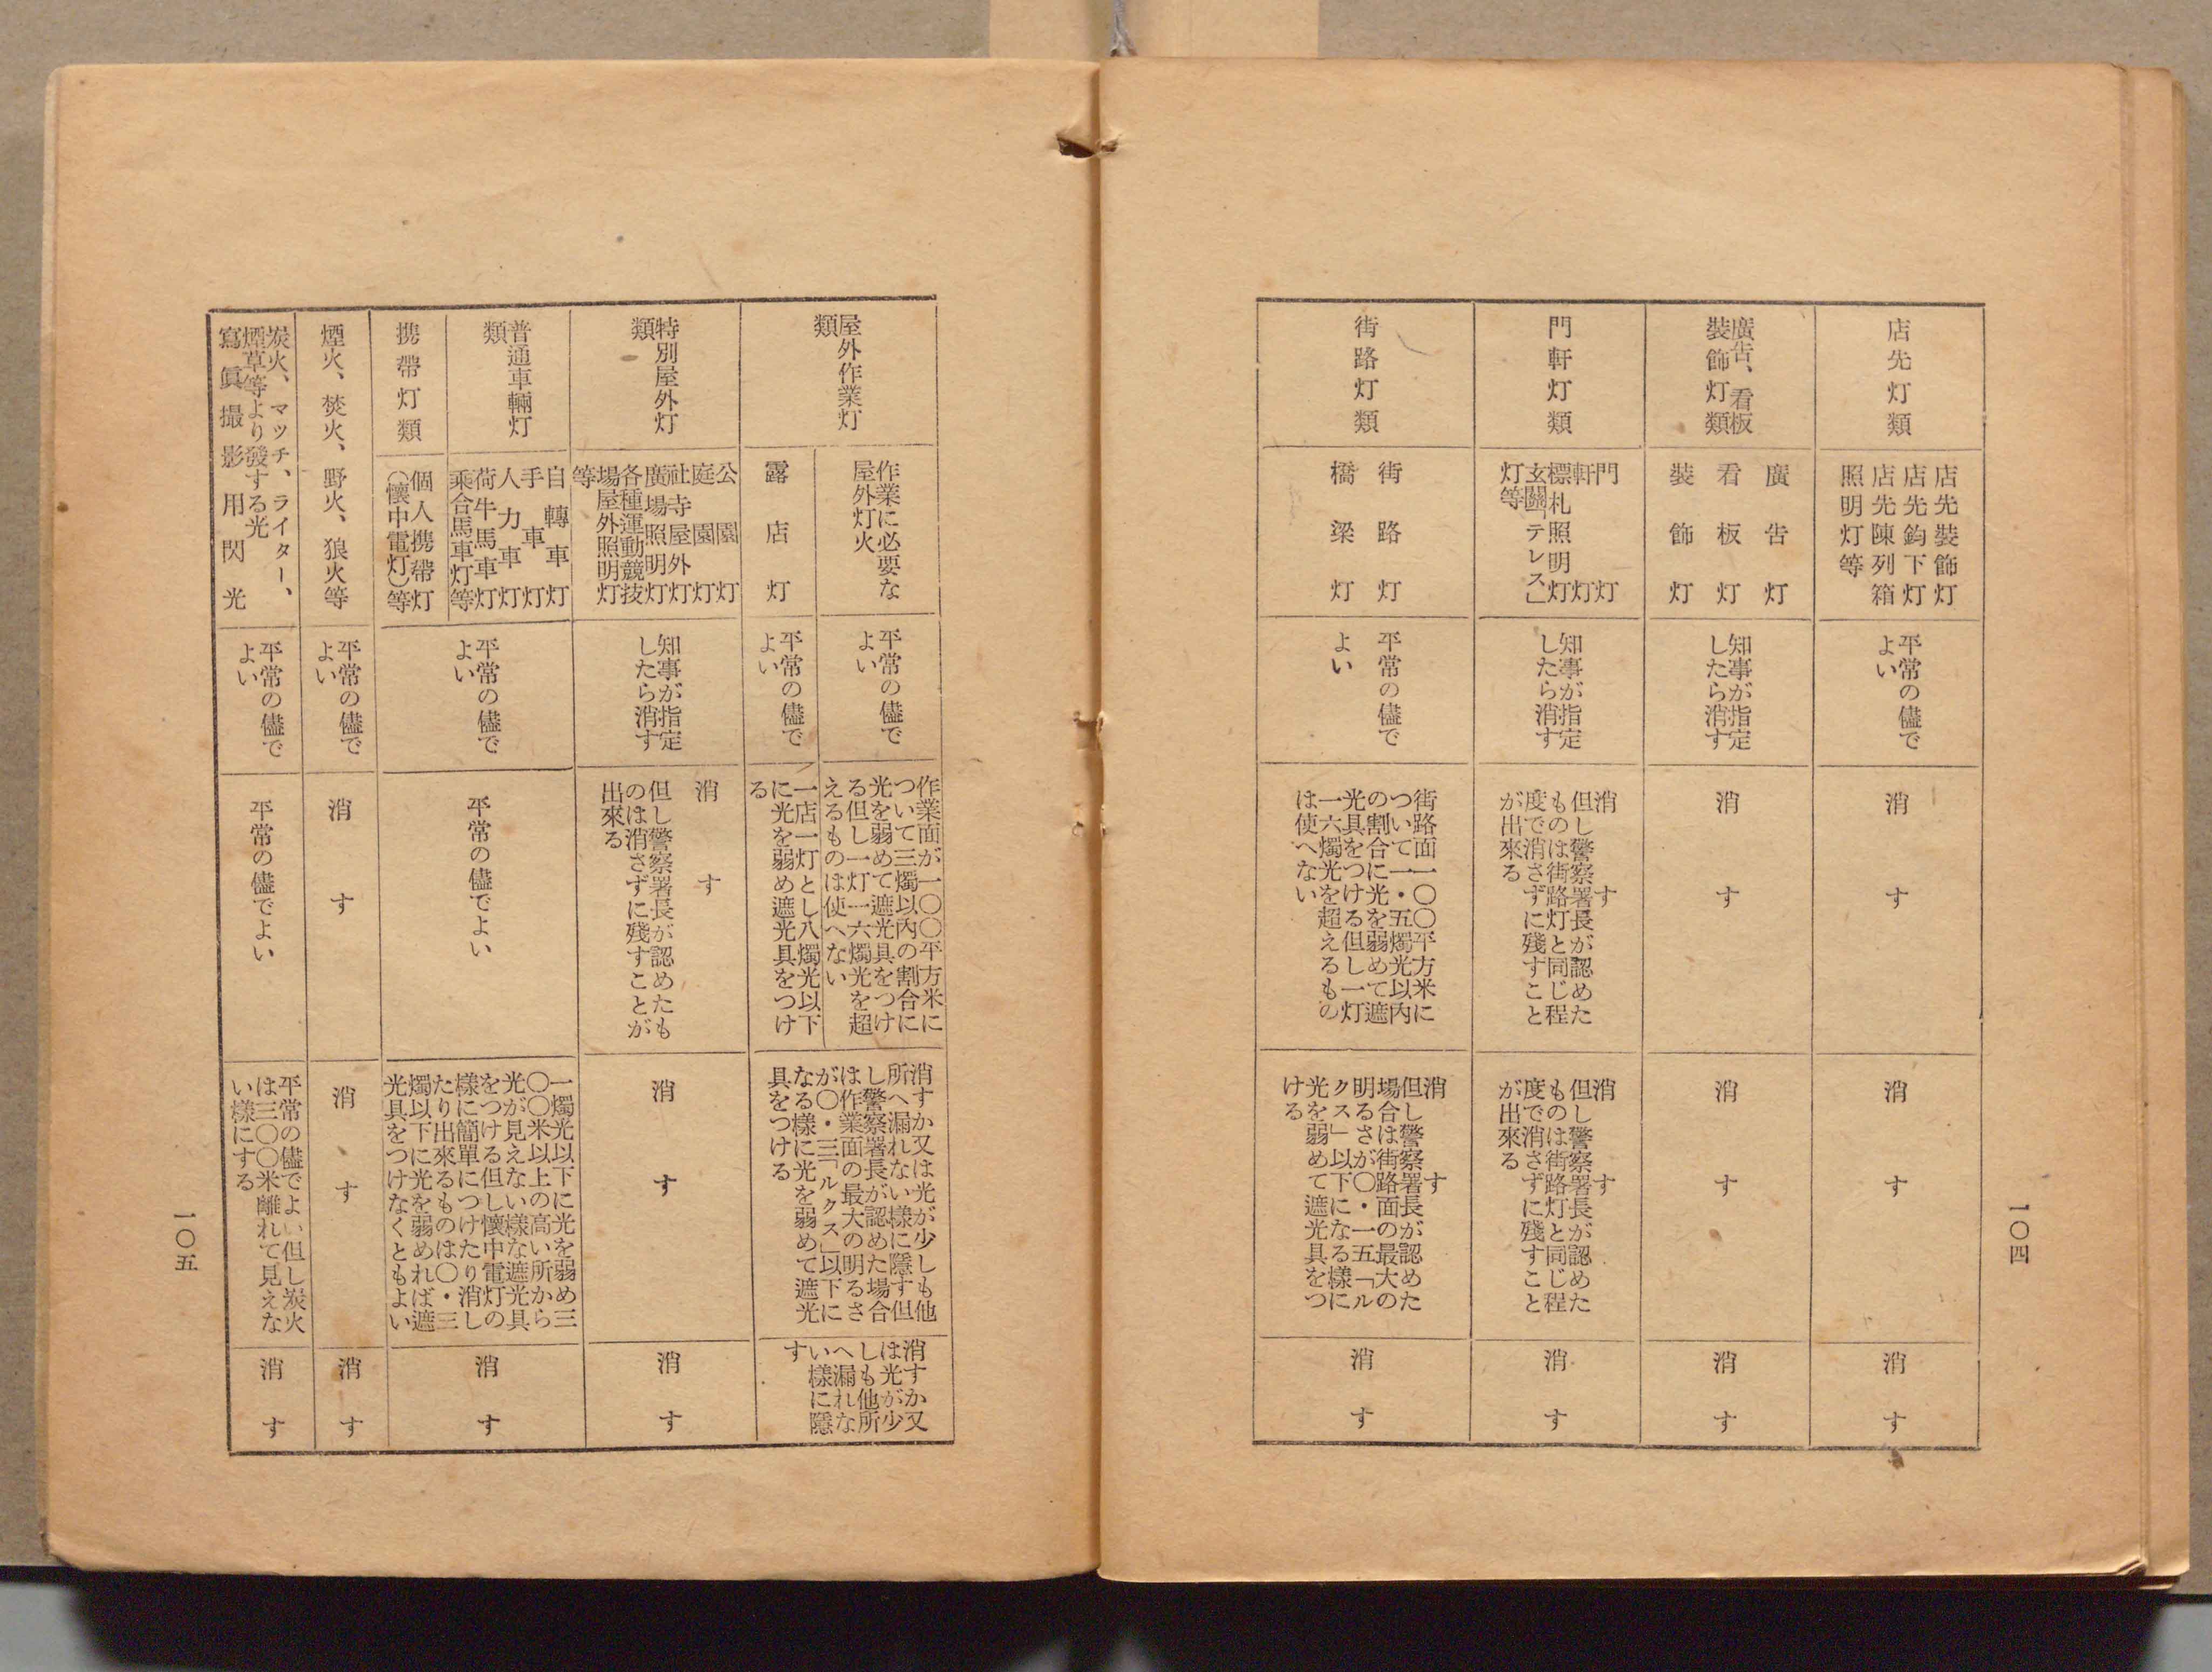 店先灯類
店先裝飾灯
店先鈎下灯
店先陳列箱
照明灯等
平常の儘で
よい
消す
消す
消す
廣告、看板
裝飾灯類
廣告灯
看板灯
裝飾灯
知事が指定
したら消す
消す
消す
消す
門軒灯類
門灯
軒灯
標札照明灯
玄關「テレス」
灯等
知事が指定
したら消す
消す
但し警察署長が認めた
ものは街路灯と同じ程
度で消さずに殘すこと
が出來る
消す
但し警察署長が認めた
ものは街路灯と同じ程
度で消さずに殘すこと
が出來る
消す
街路灯類
街路灯
橋梁灯
平常の儘で
よい
街路面一〇〇平方米に
ついて一・五燭光以內
の割合に光を弱めて遮
光具をつける但し一灯
一六燭光を超えるもの
は使へない
消す
但し警察署長が認めた
場合は街路面の最大の
明るさが〇・一五「ル
クス」以下になる樣に
光を弱めて遮光具をつ
ける
消す
一〇四
屋外作業灯
類
作業に必要な
屋外灯火
平常の儘で
よい
作業面が一〇〇平方米に
ついて三燭以內の割合に
光を弱めて遮光具をつけ
る但し一灯一六燭光を超
えるものは使へない
露店灯
平常の儘で
よい
一店一灯とし八燭光以下
に光を弱め遮光具をつけ
る
消すか又は光が少しも他
所へ漏れない樣に隱す但
し警察署長が認めた場合
は作業面の最大の明るさ
が〇・三「ルクス」以下に
なる樣に光を弱めて遮光
具をつける
消すか又
は光が少
しも他所
へ漏れな
い樣に隱
す
特別屋外灯
類
公園灯
庭園灯
社寺屋外灯
廣場照明灯
各種運動競技
場屋外照明灯
等
知事が指定
したら消す
消す
但し警察署長が認めたも
のは消さずに殘すことが
出來る
消す
消す
普通車輛灯
類
自轉車灯
手車灯
人力車灯
荷牛馬車灯
乘合馬車灯等
携帶灯類
個人携帶灯
(懷中電灯)等
平常の儘で
よい
平常の儘でよい
一燭光以下に光を弱め三
〇〇米以上の高い所から
光が見えない樣な遮光具
をつける但し懷中電灯の
樣に簡單につけたり消し
たり出來るものは〇・三
燭以下に光を弱めれば遮
光具をつけなくともよい
消す
煙火、焚火、野火、狼火等
平常の儘で
よい
消す
消す
消す
炭火、マッチ、ライター、
煙草等より發する光
寫眞撮影用閃光
平常の儘で
よい
平常の儘でよい
平常の儘でよい但し炭火
は三〇〇米離れて見えな
い樣にする
消す
一〇五